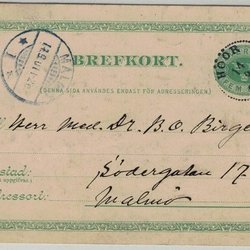 BREFKORT.
(DENNA SIDA ANVÄNDES ENDAST FÖR ADRESSERINGEN)
HÖÖR
Herr Med. Dr. B. O. Birger
Södergatan 17
Malmö